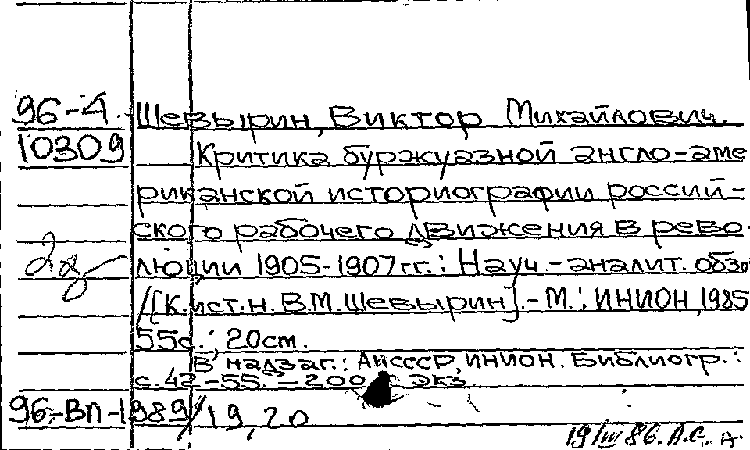 96-4 Шевырин, Виктор Михайлович.
10309 Критика буржуазной англо-аме
риканской историографии россий-
ского рабочего движения в рево-
люции 1905-1907 гг.: Науч.-аналит. обзо
/[К.ист.н. В.М. Шевырин].- М.: ИНИОН, 1985
55с.; 20см.
В надзаг.: АНСССР, ИНИОН. Библиогр.:
с. 42-55.-200 экз
96-ВП-1989/19,20
19/III 86. А.С.